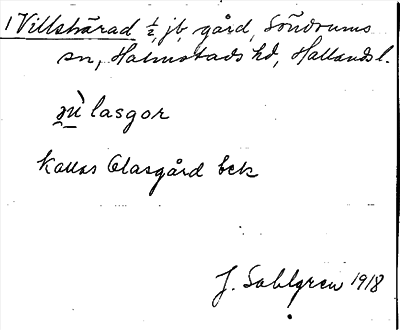 1 Villshärad ½ jb gård, Söndrums
sn, Halmstads hd, Hallands l.
lasgor
kallas Olasgård bek
J. Sahlgren 1918